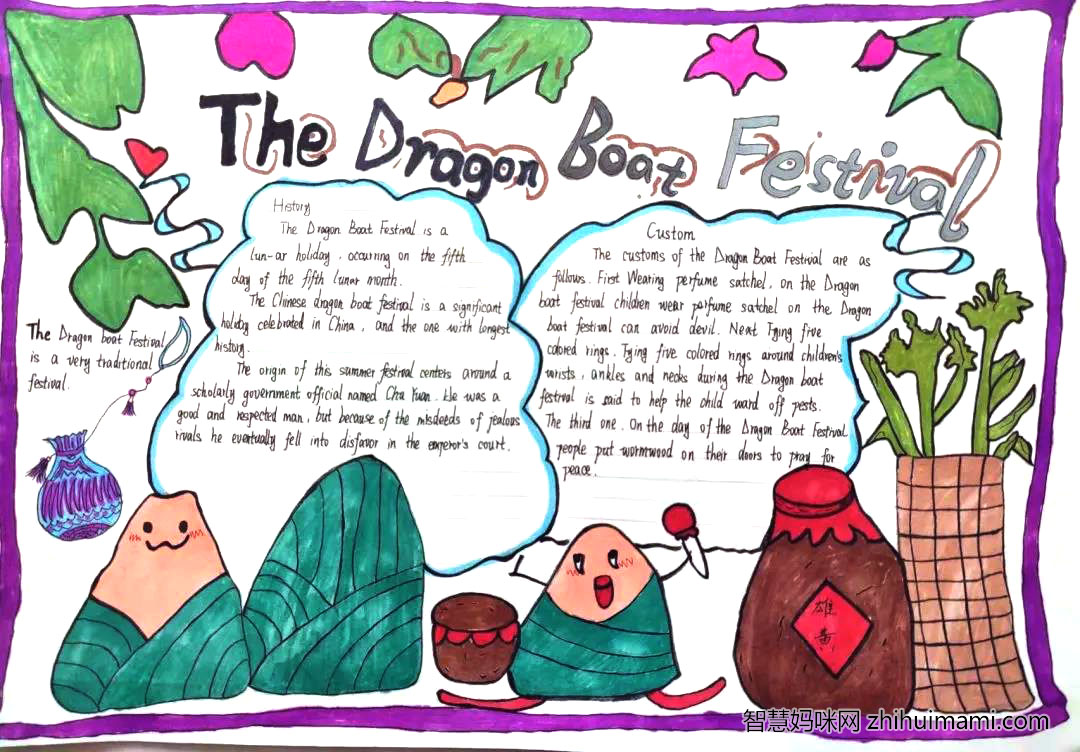 The Dragon Boat Festival
History
The Dragon Boat Festival is a
lun-ar holiday, occurring on the fifth
day of the fifth lunar month.
The Chinese dragon boat festival is a significant
holiday celebrated in China, and the one with longest
history.
The origin of this summer festival centers around a
scholarly government official named Chu Yuan. He was a
good and respected man, but because of the misdeeds of jealous
rivals he eventually fell into disfavor in the emperor's court.
Custom
The customs of the Dragon Boat Festival are as
follows. First Wearing perfume satchel, on the Dragon
boat festival children wear perfume satchel on the Dragon
boat festival can avoid devil. Next Tying five
colored rings. Tying five colored rings around children's
wrists, ankles and necks during the Dragon boat
festival is said to help the child ward off pests.
The third one. On the day of the Dragon Boat Festival
people put wormwood on their doors to pray for
peace.
The Dragon boat Festival
is a very traditional
festival.
雄
黄
智慧妈咪网 zhihuimami.com